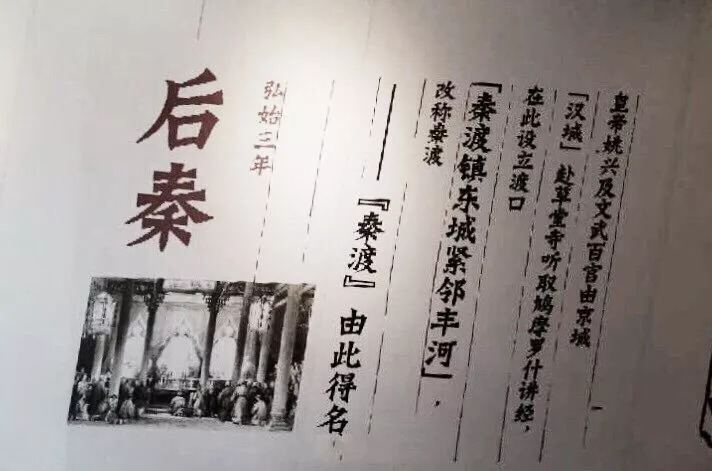 后秦
弘始三年
皇帝姚兴及文武百官由京城
『汉城』赴草堂寺听取鸠摩罗什讲经，
在此设立渡口
『秦渡镇东城紧邻丰河』，
改称秦渡
——『秦渡』由此得名